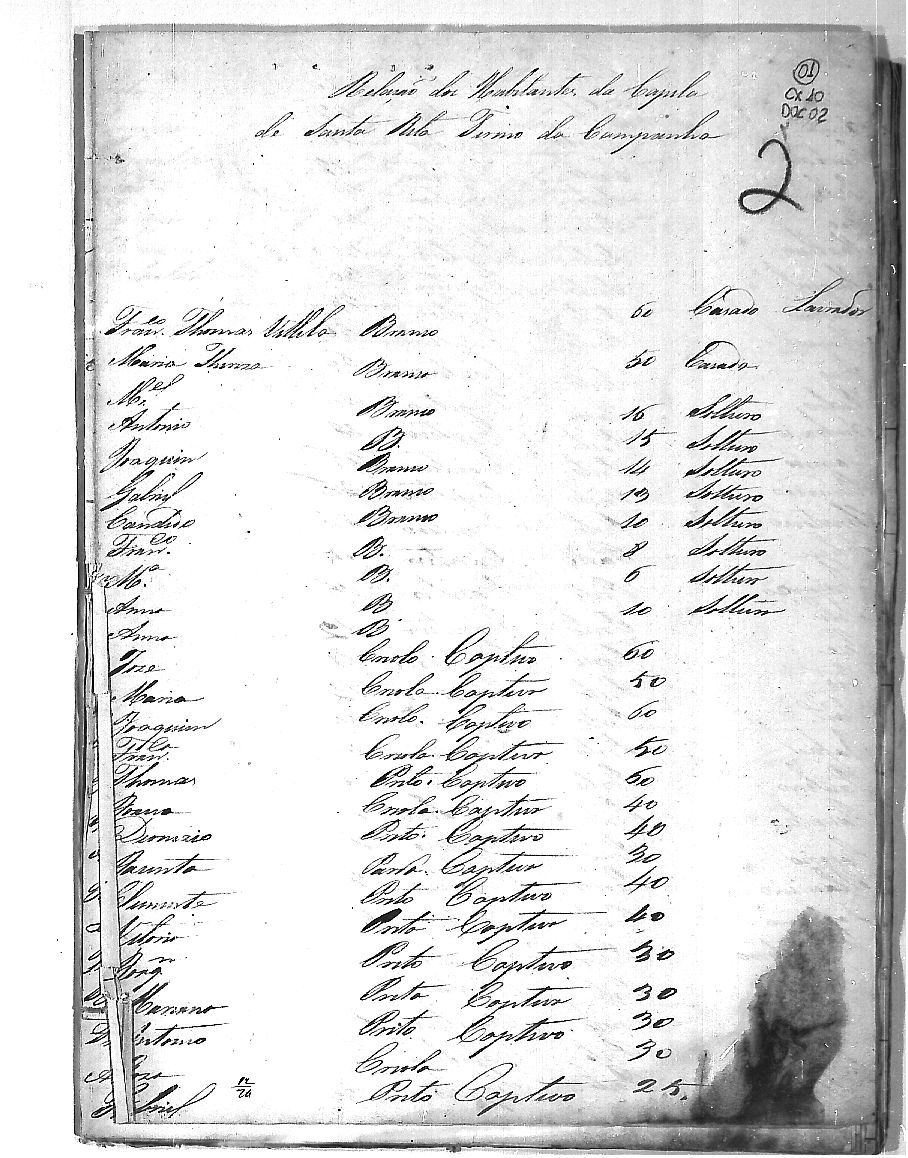 01
CX 10
DOC 02
2
Relação dos Habitantes da Capela
de Santa Rita Termo da Campanha
Fran.co Thomas Villela Branco 60 Casado Lavrador
Maria Thereza Branco 50 Casada
M.el Branco 16 Solteiro
Antonio B. 15 Solteiro
Joaquim Branco 14 Solteiro
Gabriel Branco 13 Solteiro
Candido Branco 10 Solteiro
Fran.co B. 8 Solteiro
M.a B. 6 Solteir
Anna B 10 Solteir
Anna B
Joze Criolo Captivo 60
Maria Criola Captiva 50
Joaquim Criolo Captivo 60
Fran.ca Criola Captiva 50
Thomas Preto Captivo 60
Joana Criola Captiva 40
Dionizio Preto Captivo 40
Jacinta Parda Captiva 30
Clemente Preto Captivo 40
Vitorio Preto Captivo 40
Joaq.m Preto Captivo 30
Mariano Preto Captivo 30
Antonio Preto Captivo 30
Roza Criola 30
Gabriel Preto Captivo 25.